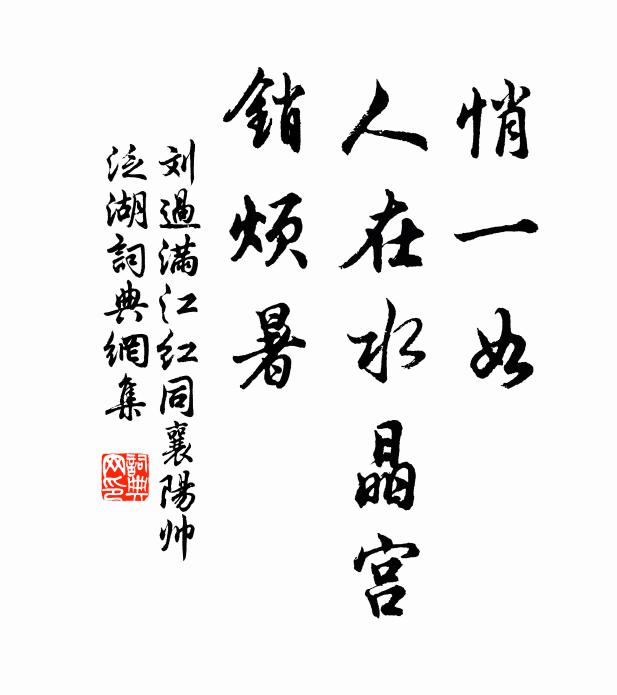 悄一如
人在水晶宫
銷煩暑
刘過满江红同襄陽帅
泛湖詞典網集
詞典
网印